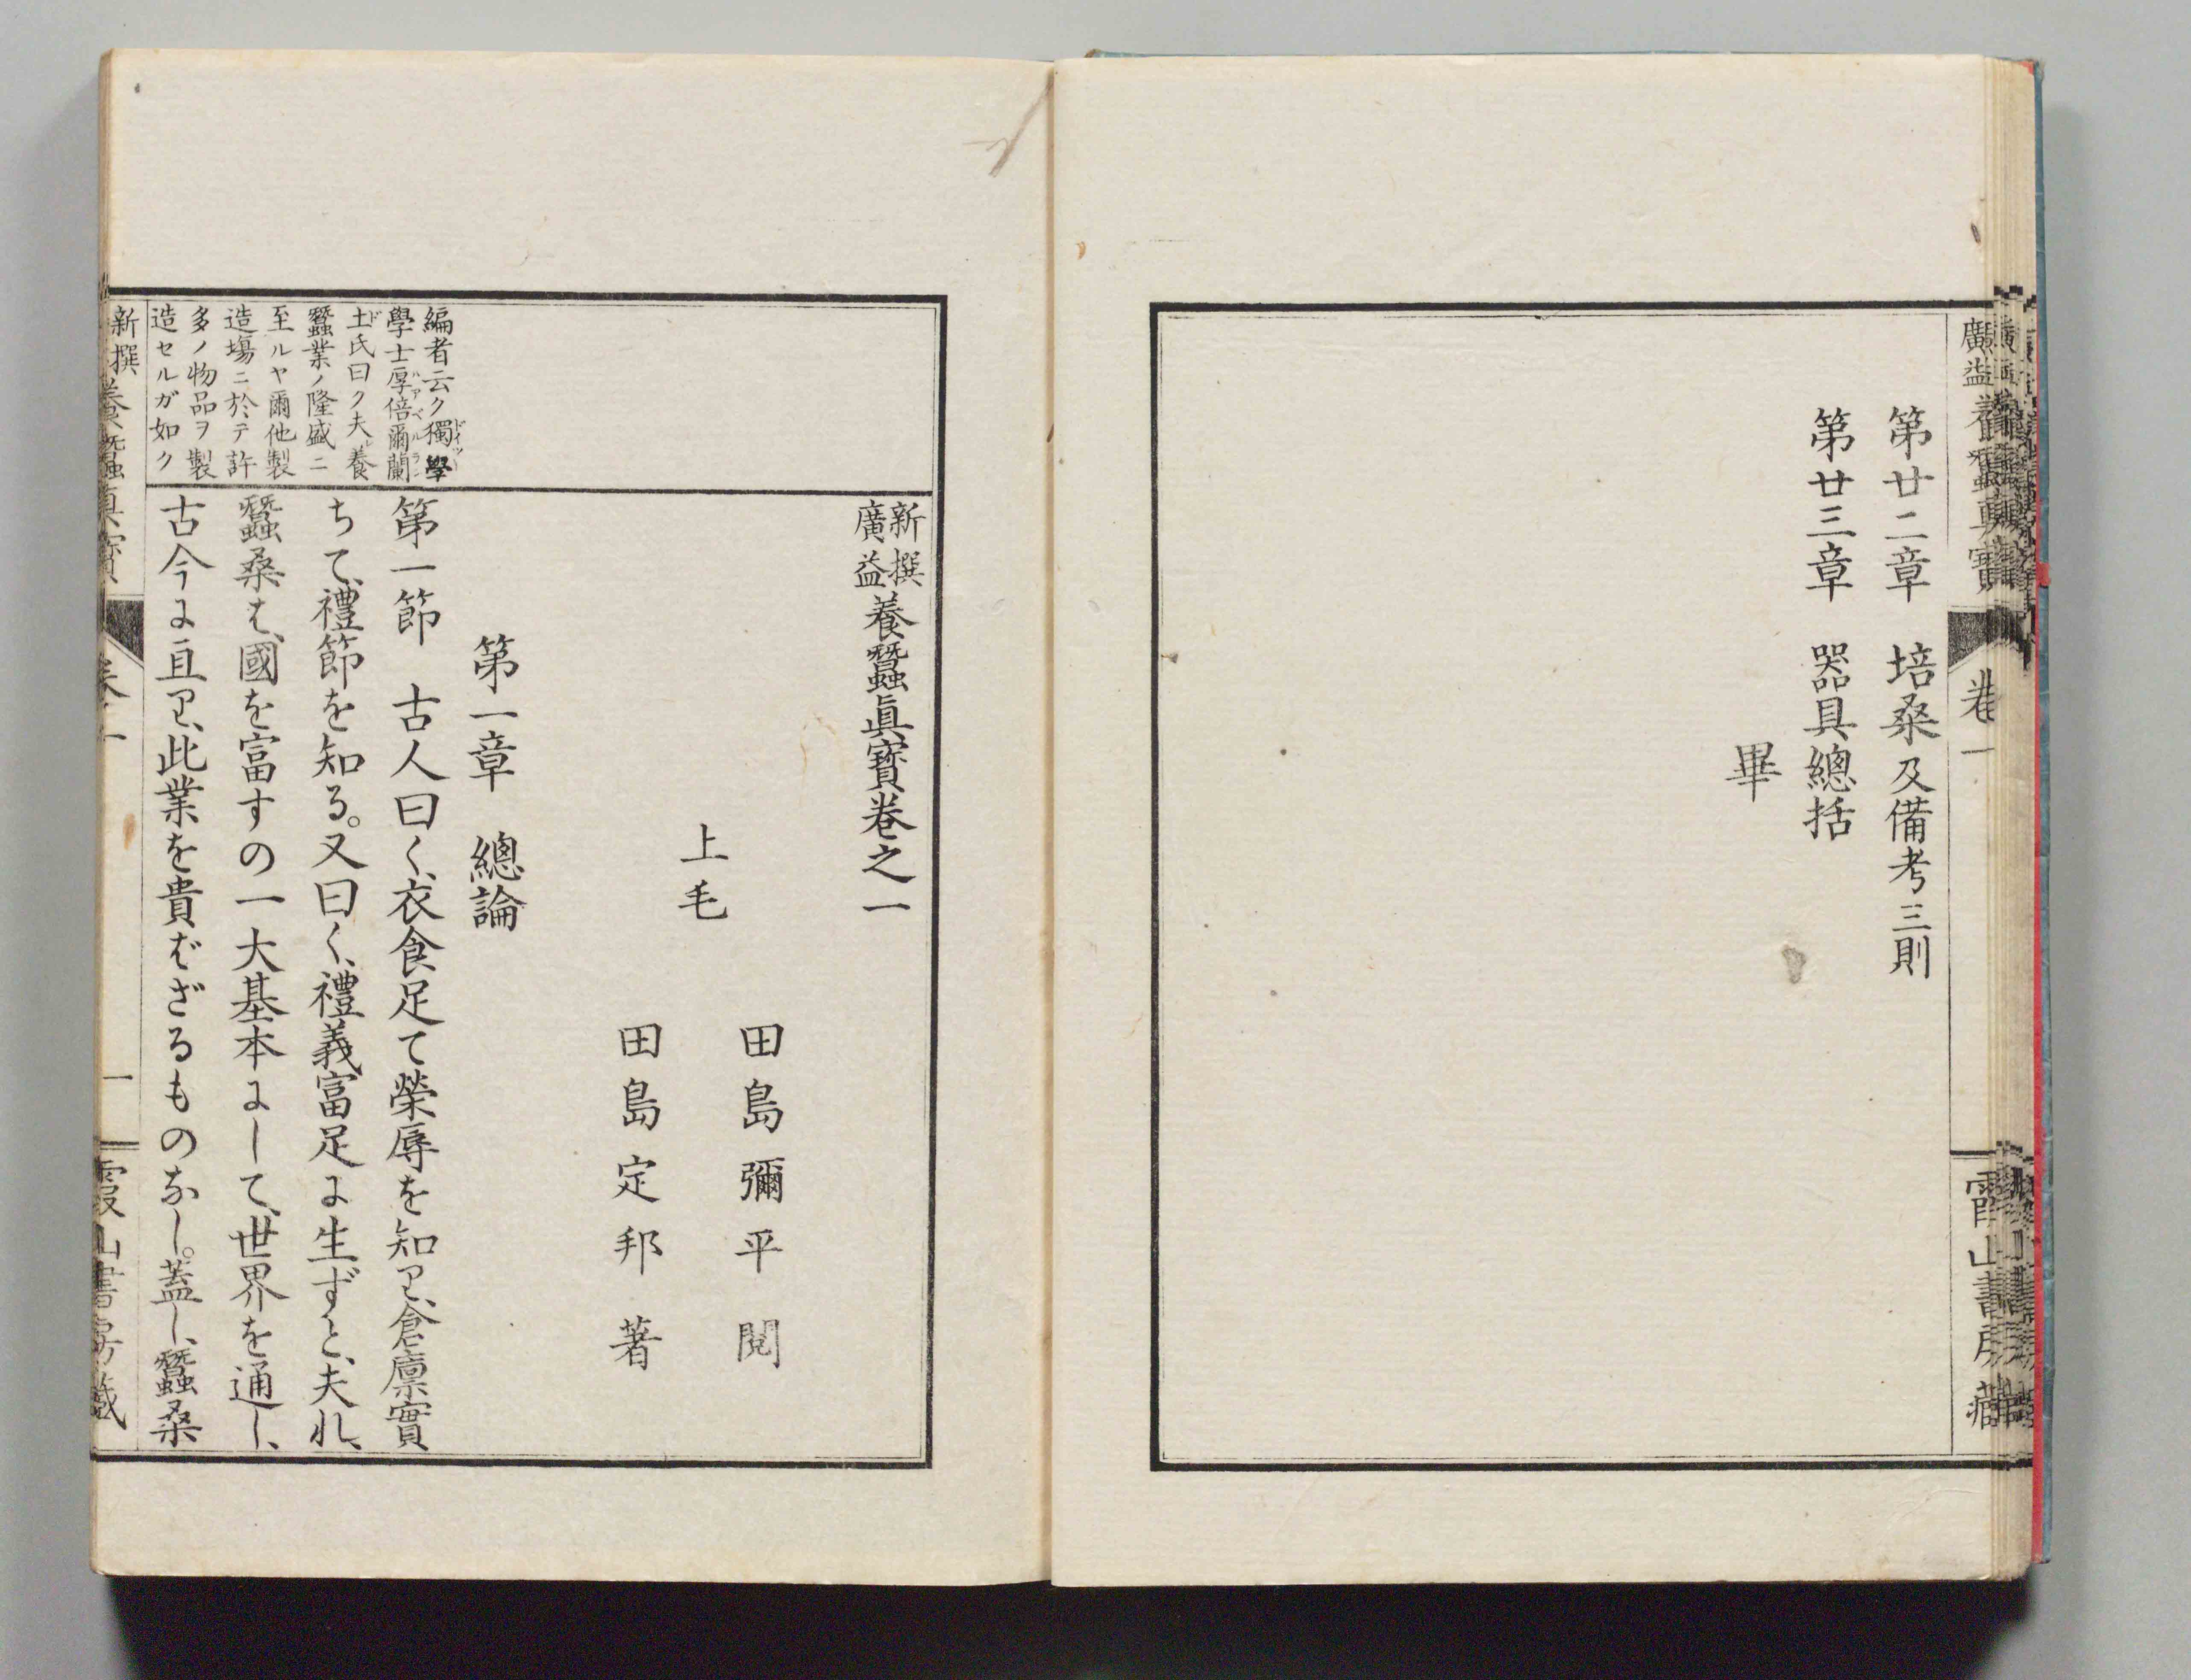 廣益養蠶眞寳
卷一
霞山書房藏
第廿二章　培桑及備考三則
第廿三章　器具總括
畢
新撰
廣益
養蠶眞寳卷之一
田島彌平　閲
上毛
田島定邦　著
第一章　總論
編者云ク獨學
ドイツ
學士厚倍爾蘭
ハアベルラン
土氏曰ク夫レ養
ド
蠶業ノ隆盛ニ
至ルヤ爾他製
造塲ニ於テ許
多ノ物品ヲ製
造セルガ如ク
第一節　古人曰く、衣食足て榮辱を知り、倉廪實
ちて、禮節を知る。又曰く、禮義富足に生ずと、夫れ、
蠶桑は、國を富すの一大基本にして、世界を通し、
古今に亘り、此業を貴ばざるものなし。蓋し、蠶桑
新撰
養蠶眞寳
卷一
一
霞山書房藏